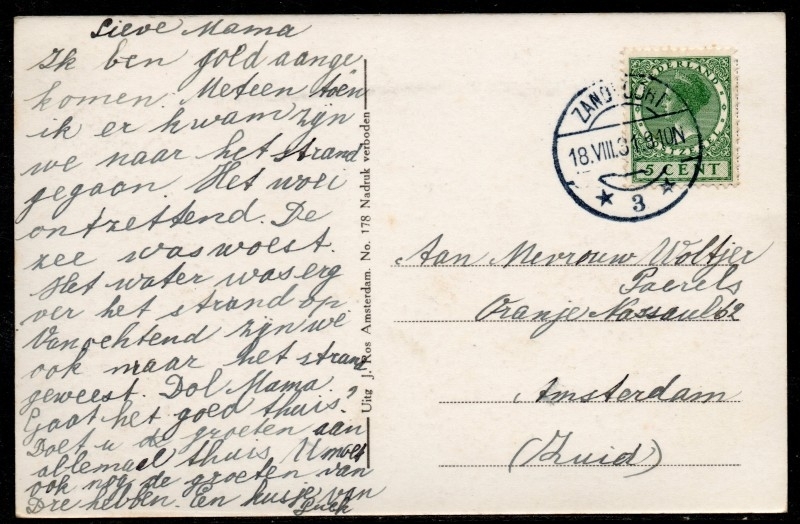 Lieve Mama
Ik ben goed aange
komen. Meteen toen
ik er kwam zijn
we naar het strand
gegaan. Het woei
ontzettend. De
zee was woest.
Het water was erg
ver het strand op
Vanochtend zijn we
ook maar het strand
geweest. Dol Mama.
Gaat het goed thuis?
Doet u de groeten aan
allemaal thuis, U moet
ook nog de groeten van
Dre hebben. En kusje van
Puck
Uitg J. Ros Amsterdam. No. 178 Nadruk verboden
NEDERLAND
5 CENT
ZANDVOORT
18.VIII.31 8.10N
3
Aan Mevrouw Woltjer
Paerels
Oranje Nassaul 62
Amsterdam
(Zuid)